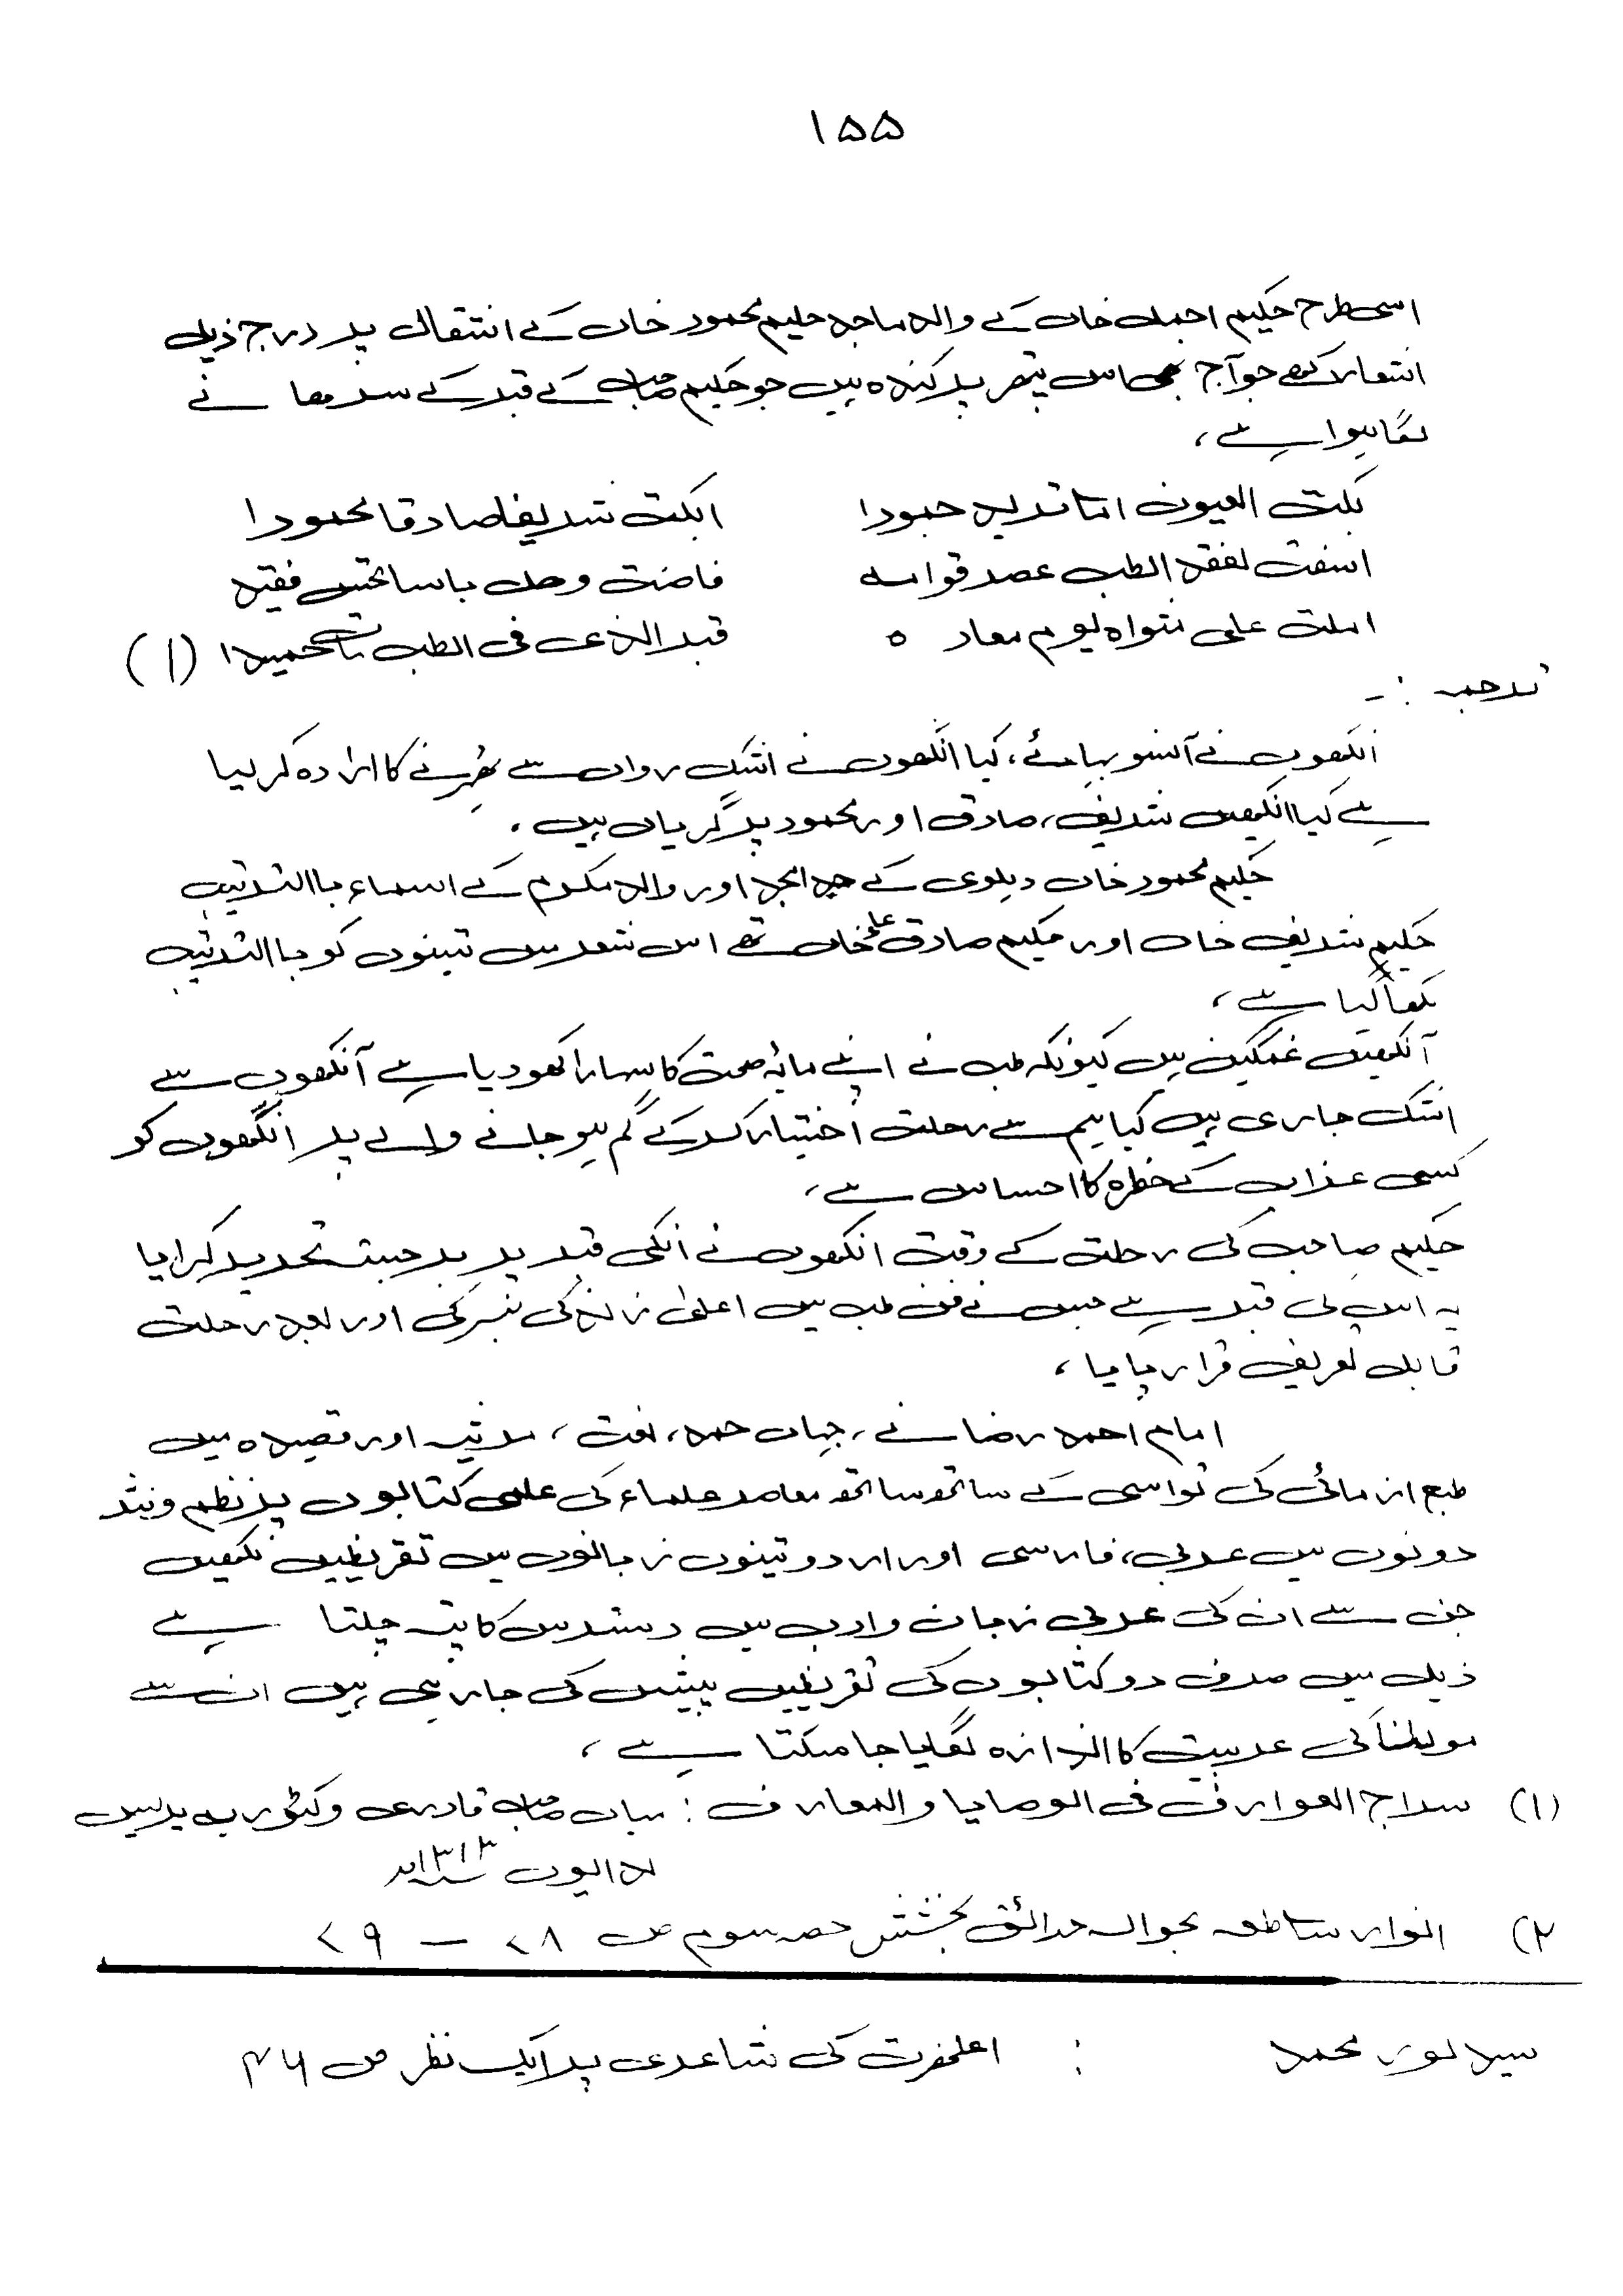 ۱۵۵
اسی طرح حکیم اجمل خاں کے والد ماجد حکیم محمود خاں کے انتقال پر درج ذیل
اشعار کہے جو آج بھی اس پتھر پر کندہ ہیں جو حکیم صاحب کے قبر کے سرھانے
لگا ہوا ہے،
بکت العیون اما ترید جمودا
ابکت شریفا صادقا محمودا
اسفت لفقد الطب عصر قوامہ
فاضت وھل باساختیں فقید
املت علی مثواہ یوم معادہ
قبر الذی فی الطب حمیدا (۱)
ترجمہ :۔
انکھوں نے آنسو بہائے، کیا انکھوں نے اشک رواں سے ٹھہرنے کا ارادہ کر لیا
ہے کیا انکھیں شریف، صادق اور محمود پر گریاں ہیں۔
حکیم محمود خاں دہلوی کے جد امجد اور والد مکرم کے اسماء باالترتیب
حکیم شریف خاں اور حکیم صادق علی خاں تھے اس شعر میں تینوں کو باالترتیب
لکھا گیا ہے،
آنکھیں غمگین ہیں کیونکہ طب نے اپنے مایۂ صحت کا سہارا کھو دیا ہے آنکھوں سے
اشک جاری ہیں کیا ہم سے رحلت اختیار کر کے گم ہو جانے والے پر انکھوں کو
کسی عذاب کے خطرہ کا احساس ہے،
حکیم صاحب کی رحلت کے وقت انکھوں نے انکی قبر پر برجستہ تحریر کرایا
یہ اس کی قبر ہے جس نے فن طب میں اعلیٰ زندگی بسر کی اور بعد رحلت
قابل تعریف قرار پایا،
امام احمد رضا نے، جہاں حمد، نعت، مرثیہ اور قصیدہ میں
طبع ازمائی کی تو اسی کے ساتھ ساتھ معاصر علماء کی علمی کتابوں پر نظم و نثر
دونوں میں عربی، فارسی اور اردو تینوں زبانوں میں تقریظیں لکھیں
جن سے ان کی عربی زبان و ادب میں دسترس کا پتہ چلتا ہے
ذیل میں صرف دو کتابوں کی تقریظیں پیش کی جا رہی ہیں ان سے
مولٰنا کی عربیت کا اندازہ لگایا جا سکتا ہے،
(۱) سراج العوارف فی الوصایا والمعارف : میاں صاحب قادری وکٹوریہ پریس
بدایوں سنہ ۱۳۱۳ھ
۲) انوار ساطعہ بحوالہ حدائق بخشش حصہ سوم ص ۷۸ — ۷۹
سید نور محمد : اعلحضرت کی شاعری پر ایک نظر ص ۴۶